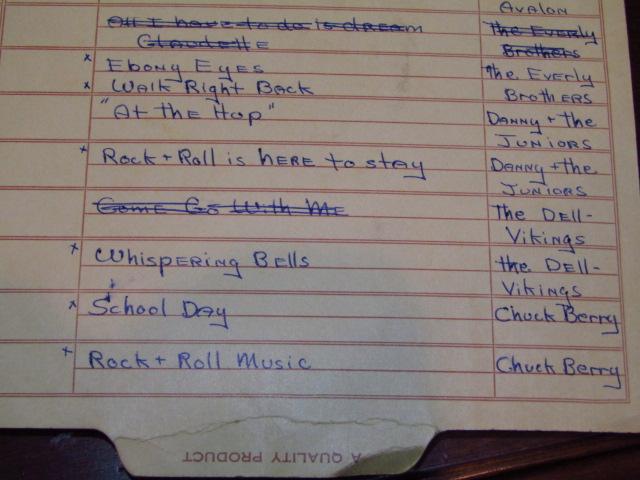 Avalon
All I have to do is dream The Everly
Claudette Brothers
x Ebony Eyes The Everly
x Walk Right Back Brothers
"At the Hop" Danny + the
Juniors
x Rock + Roll is here to stay Danny + the
Juniors
Come Go With Me The Dell-
Vikings
x Whispering Bells the Dell-
Vikings
x School Day Chuck Berry
x Rock + Roll Music Chuck Berry
A QUALITY PRODUCT